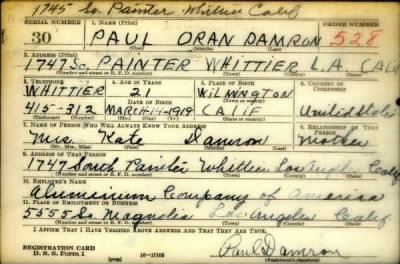 1745 So. Painter Whittier Calif
SERIAL NUMBER 1. NAME (Print) ORDER NUMBER
30 PAUL ORAN DAMRON 528
(First) (Middle) (Last)
2. ADDRESS (Print)
1747 So. PAINTER WHITTIER L.A. CALIF
(Number and street or R. F. D. number) (Town) (County) (State)
3. TELEPHONE 4. AGE IN YEARS 5. PLACE OF BIRTH 6. COUNTRY OF CITIZENSHIP
WHITTIER 21 WILMINGTON
DATE OF BIRTH (Town or county)
415-312 MARCH-4-1919 CALIF United States
(Exchange) (Number) (Mo.) (Day) (Yr.) (State or country)
7. NAME OF PERSON WHO WILL ALWAYS KNOW YOUR ADDRESS 8. RELATIONSHIP OF THAT PERSON
Mrs Kate Damron Mother
(Mr., Mrs., Miss) (First) (Middle) (Last)
9. ADDRESS OF THAT PERSON
1747 South Painter Whittier Los Angeles Calif
(Number and street or R. F. D. number) (Town) (County) (State)
10. EMPLOYER'S NAME
Aluminium Company of America
11. PLACE OF EMPLOYMENT OR BUSINESS
5555 So Magnolia Los Angeles Calif
(Number and street or R. F. D. number) (Town) (County) (State)
I AFFIRM THAT I HAVE VERIFIED ABOVE ANSWERS AND THAT THEY ARE TRUE.
REGISTRATION CARD
D. S. S. Form 1 16-17105 Paul Damron
(Registrant's signature)